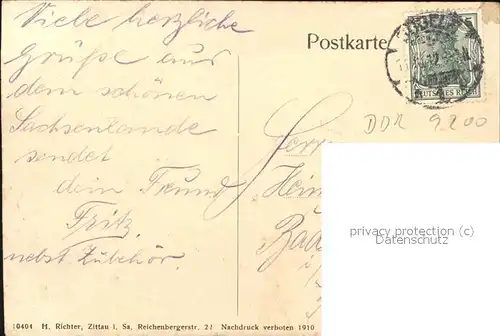 Viele herzliche
Grüße aus
dem schönen
Sachsenlande
sendet
dein Freund
Fritz
nebst Zubehör.
Postkarte
5
DEUTSCHES REICH
DDR 9200
Herrn
privacy protection (c)
Datenschutz
10404 H. Richter, Zittau i. Sa. Reichenbergerstr. 21 Nachdruck verboten 1910